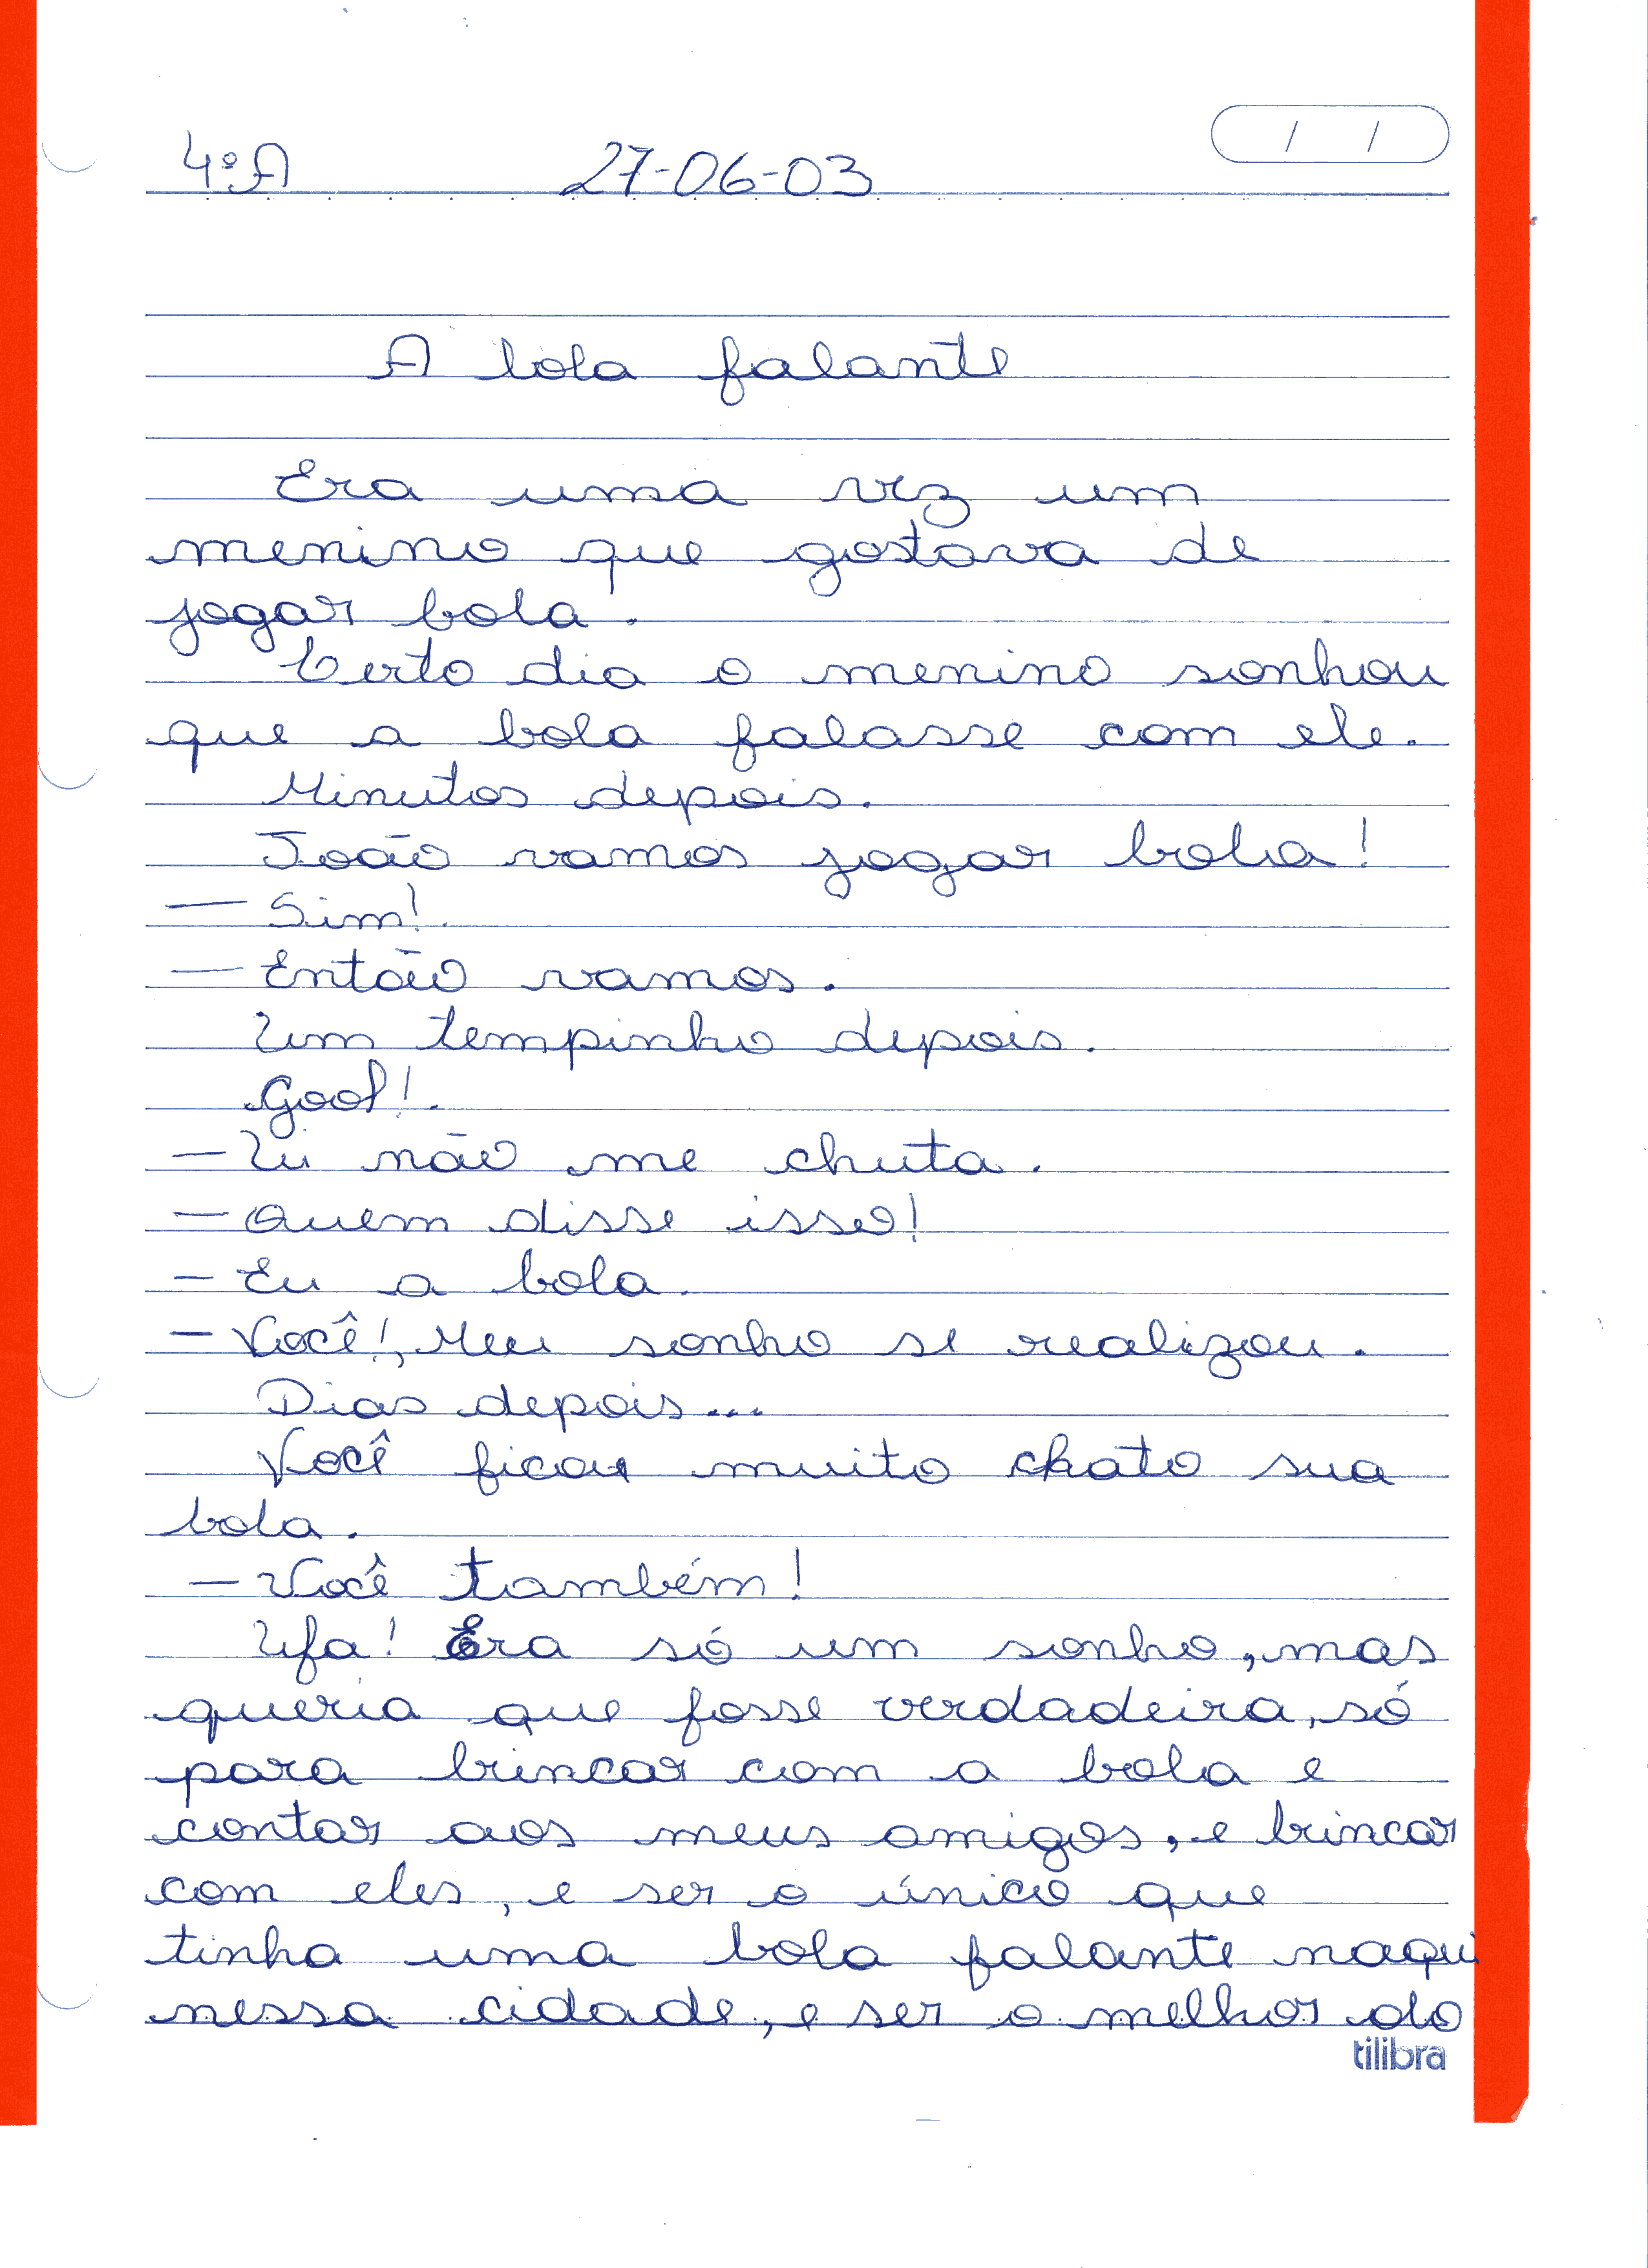 4ºA 27-06-03
/ /
A bola falante
Era uma vez um
menino que gostava de
jogar bola.
Certo dia o menino sonhou
que a bola falasse com ele.
Minutos depois.
João vamos jogar bola!
— Sim!.
— Então vamos.
Um tempinho depois.
Gool!.
— Ui não me chuta.
— Quem disse isso!
— Eu a bola.
— Você!, Meu sonho se realizou.
Dias depois...
Você ficou muito chato sua
bola.
— Você também!
Ufa! Era só um sonho, mas
queria que fosse verdadeira, só
para brincar com a bola e
contar aos meus amigos, e brincar
com eles, e ser o único que
tinha uma bola falante naqui
nessa cidade, e ser o melhor do
tilibra